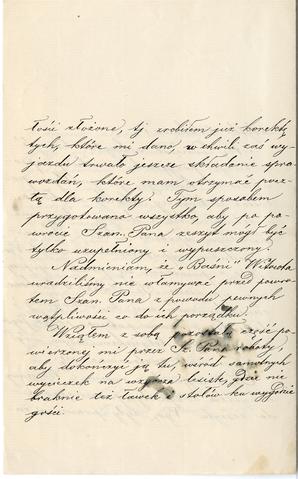 łości złożone, tj. zrobiłem już korektę
tych, które mi dano, w chwili zaś wy-
jazdu trwało jeszcze składanie spra-
wozdań, które mam otrzymać pocz-
tą dla korekty. Tym sposobem
przygotowano wszystko, aby po po-
wrocie Szan. Pana zeszyt mógł być
tylko uzupełniony i wypuszczony.
Nadmieniam, że „Baśni" Witowta
uradziliśmy nie włamywać przed powro-
tem Szan. Pana z powodu pewnych
wątpliwości co do ich porządku.
Wziąłem z sobą pozostałą część po-
wierzonej mi przez Sz. Pana roboty,
aby dokończyć ją tu, wśród samotnych
wycieczek na wzgórza lesiste, gdzie nie
braknie też ławek i stołów ku wygodzie
gości.